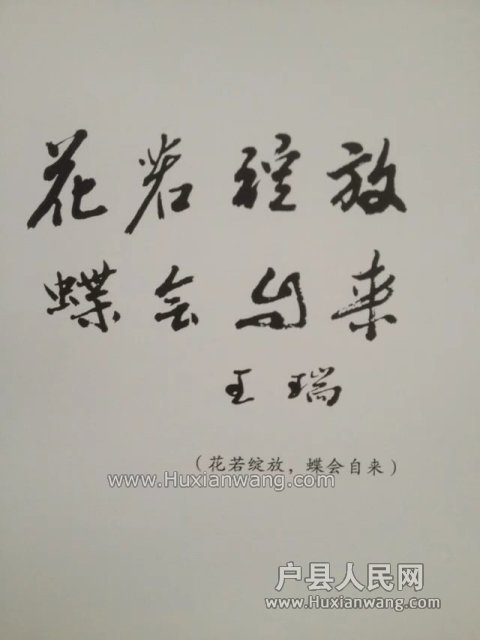 花若绽放
蝶会自来
王瑞
(花若绽放，蝶会自来)
www.Huxianwang.com
户县人民网
www.Huxianwang.com